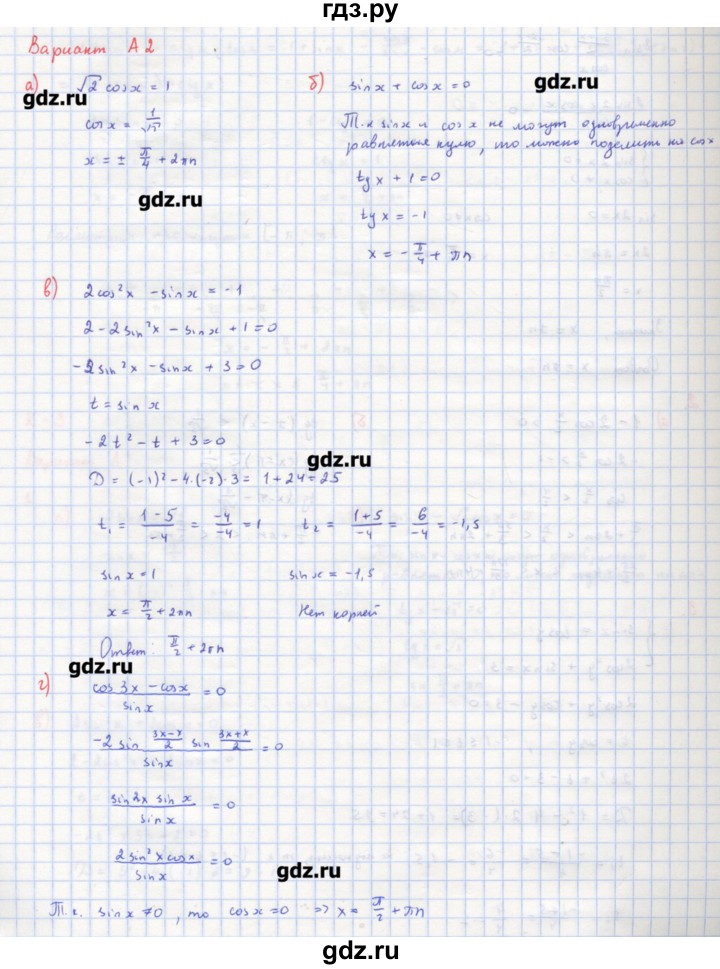 гдз.ру
Вариант А2
а) √2 cosx = 1
gdz.ru
cosx = 1/√2
x = ± π/4 + 2πn
gdz.ru
б) sinx + cosx = 0
gdz.ru
Т.к sinx и cosx не могут одновременно
равняться нулю, то можно поделить на cosx
tgx + 1 = 0
tgx = -1
x = -π/4 + πn
в) 2cos²x - sinx = -1
2 - 2sin²x - sinx + 1 = 0
-2sin²x - sinx + 3 = 0
t = sinx
-2t² - t + 3 = 0
gdz.ru
D = (-1)² - 4·(-2)·3 = 1 + 24 = 25
t₁ = (1-5)/-4 = -4/-4 = 1 t₂ = (1+5)/-4 = 6/-4 = -1,5
sinx = 1 sinx = -1,5
x = π/2 + 2πn Нет корней
Ответ: π/2 + 2πn
gdz.ru
г) (cos3x - cosx)/sinx = 0
(-2sin (3x-x)/2 sin (3x+x)/2)/sinx = 0
(sin2x sinx)/sinx = 0
(2sin²x cosx)/sinx = 0
gdz.ru
Т.к. sinx ≠ 0, то cosx = 0 => x = π/2 + πn
gdz.ru